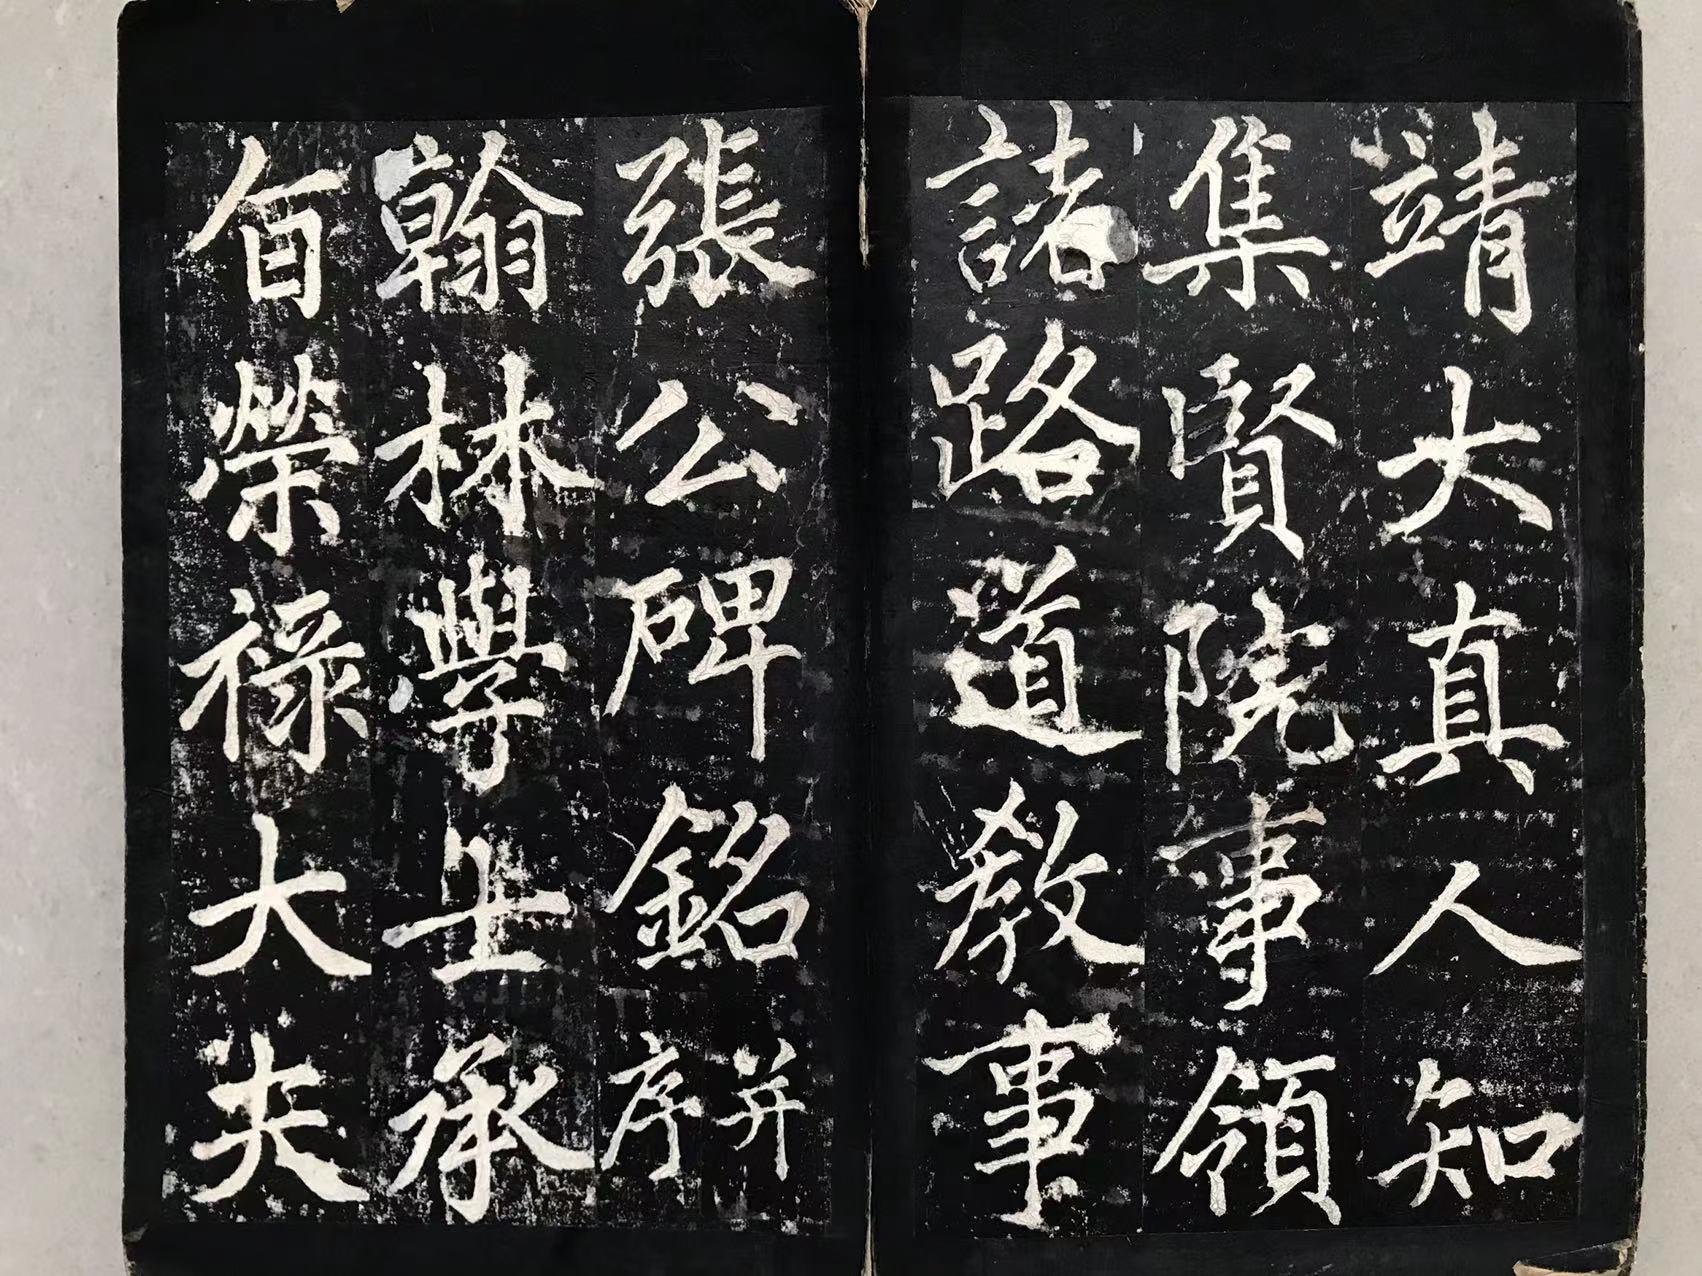 靖大真人知
集賢院事領
諸路道教事
張公碑銘并序
翰林學士承
旨榮祿大夫